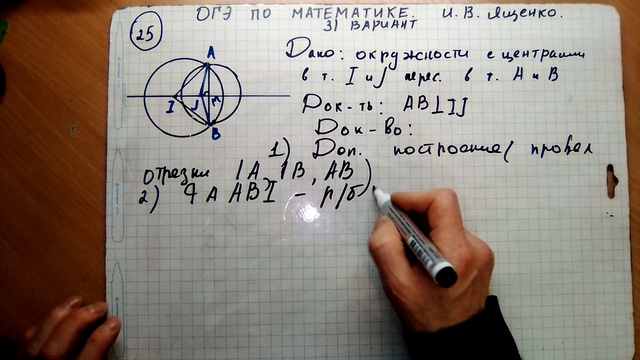 ОГЭ ПО МАТЕМАТИКЕ. И. В. Ященко.
31 ВАРИАНТ
25
Дано: окружности с центрами
в т. I и J перес. в т. A и B
Док-ть: AB⊥IJ
Док-во:
1) Доп. построение( провел
отрезки IA, IB, AB)
2) ABI - р/б
A
I
J
B